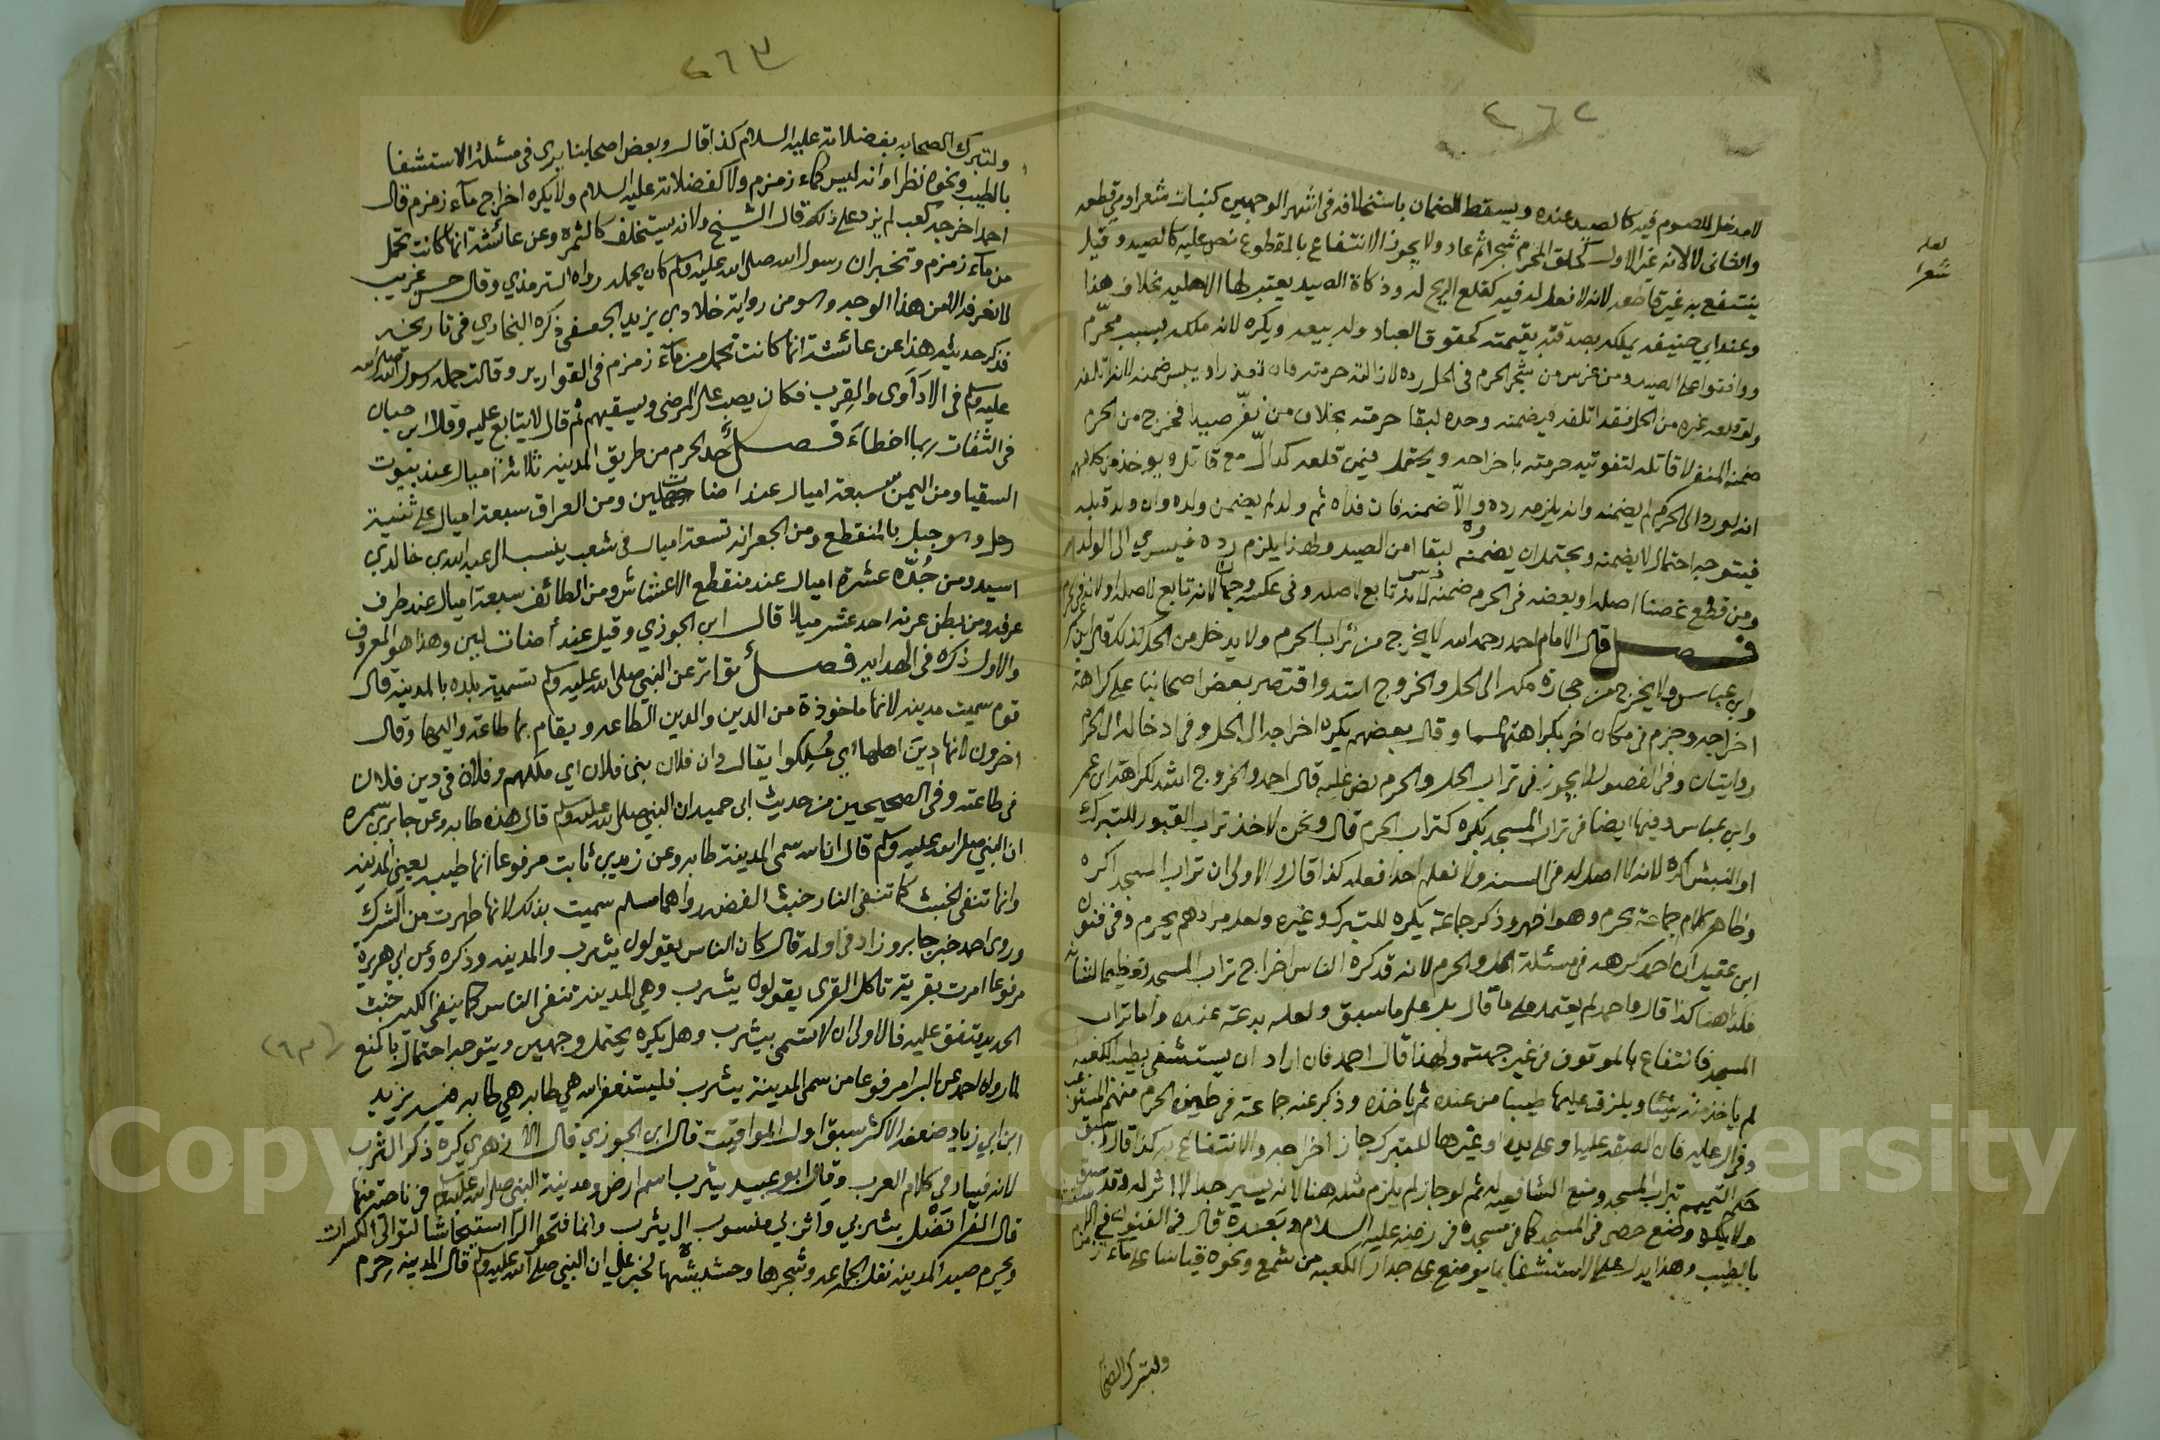 ٤٦٢
لا مدخل للصوم فيه كالصيد عنده ويسقط الضمان باستخلافه في اشهر الوجهين كنبات شعر ادمي قطعه
والثاني لا لانه غير الاول كحلق المحرم شعرا ثم عاد ولا يجوز الانتفاع بالمقطوع نص عليه كالصيد وقيل
لعله
شعرا
ينتفع به غير قاطعه لانه لا فعل له فيه كقلع الريح له وذكاة الصيد يعتبر لها الاهلية بخلاف هذا
وعند ابي حنيفة يملكه بصدقته بقيمته كحقوق العباد وله بيعه ويكره لانه ملكه بسبب محرم
ووافقوا على الصيد ومن غرس من شجر الحرم في الحل رده لازالته حرمته فان تعذر او يبس ضمنه لانه اتلفه
ولو قلعه غيره من الحل فقد اتلفه فيضمنه وحده لبقا حرمته بخلاف من نفر صيدا فخرج من الحرم
ضمنه المنفر لا قاتله لتفويته حرمته باخراجه ويحتمل فيمن قلعه كدال مع قاتل ويوخذ من كلامهم
انه لو رده الى الحرم لم يضمنه وانه يلزمه رده والا ضمنه فان فداه ثم ولد لم يضمن ولده وان ولد قبله
فيتوجه احتمال لا يضمنه ويحتمل ان يضمنه لبقا امن الصيد ولهذا يلزم رده فيسري الى الولد
ومن قطع غصنا اصله او بعضه في الحرم ضمنه لانه تابع لاصله وفي عكسه وجهان لانه تابع لاصله او لانه في الحرم
فصل قال الامام احمد رحمه الله لا يخرج من تراب الحرم ولا يدخل من الحل كذلك قال ابن عمر
وابن عباس ولا يخرج من حجارة مكة الى الحل والخروج اشد واقتصر بعض اصحابنا على كراهة
اخراجه وجزم في مكان اخر بكراهتهما وقال بعضهم يكره اخراجه الى الحل وفي ادخاله الى الحرم
روايتان وفي الفصول لا يجوز في تراب الحل والحرم نص عليه قال احمد والخروج اشد لكراهة ابن عمر
وابن عباس وفيها ايضا في تراب المسجد يكره كتراب الحرم قال ونحن لاخذ تراب القبور للتبرك
او النبش اكره لانه لا اصل له في السنة ولا نعلم احدا فعله كذا قال والاولى ان تراب المسجد اكره
وظاهر كلام جماعة يحرم وهو اظهر وذكر جماعة يكره للتبرك وغيره ولعل مرادهم يحرم وفي فنون
ابن عقيل ان احمد كرهه في مسئلة الحل والحرم لانه قد كره الناس اخراج تراب المسجد تعظيما لشانه
فكذا هنا كذا قال واحمد لم يعتمد على ما قال بل على ما سبق ولعله بدعة عنده واما تراب
المسجد فانتفاع بالموقوف في غير جهته ولهذا قال احمد فان اراد ان يستشفي بطيب الكعبة
لم ياخذ منه شيئا ويلزق عليها طيبا من عنده ثم ياخذه وذكر عنه جماعة في طين الحرم منهم المستوعب
وفي الرعاية فان الصقه عليها وعلى يده او غيرها للتبرك جاز اخراجه والانتفاع به كذا قال وسبق
حكم التيمم بتراب المسجد ومنع الشافعية له ثم لو جاز لم يلزم مثله هنا لانه يسير جدا لا اثر له وقد سبق
ولا يكره وضع حصى في المسجد كما في مسجده في زمنه عليه السلام وبعده قال في الفنون في
بالطيب وهذا يدل على الاستشفا بما يوضع على جدار الكعبة من شمع ونحوه قياسا على ماء زمزم
ولتبرك الصحا
٤٦٣
ولتبرك الصحابة بفضلاته عليه السلام كذا قال وبعض اصحابنا يرى في مسئلة الاستشفا
بالطيب ونحوه نظرا وانه ليس كماء زمزم ولا كفضلاته عليه السلام ولا يكره اخراج ماء زمزم قال
احمد اخرجه كعب لم يزد على ذلك قال الشيخ ولانه يستخلف كالثمرة وعن عائشة انها كانت تحمل
من ماء زمزم وتخبر ان رسول الله صلى الله عليه وسلم كان يحمله رواه الترمذي وقال حسن غريب
لا نعرفه الا من هذا الوجه وهو من رواية خلاد بن يزيد الجعفي ذكره البخاري في تاريخه
فذكر حديثه هذا عن عائشة انها كانت تحمل من ماء زمزم في القوارير وقالت حمله رسول الله صلى الله
عليه وسلم في الاداوى والقرب فكان يصب على المرضى ويسقيهم ثم قال لا يتابع عليه وقال ابن حبان
في الثقات ربما اخطاء فصل حد الحرم من طريق المدينة ثلاثة اميال عند بيوت
السقيا ومن اليمن سبعة اميال عند اضاة لبن ومن العراق سبعة اميال على ثنية
رحل وهو جبل بالمنقطع ومن الجعرانة تسعة اميال في شعب ينسب الى عبد الله بن خالد بن
اسيد ومن جدة عشرة اميال عند منقطع الاعشاش ومن الطائف سبعة اميال عند طرف
عرفة ومن بطن عرنة احد عشر ميلا قال ابن الجوزي وقيل عند أضات لبن وهذا هو المعروف
والاول ذكره في الهداية فصل تواتر عن النبي صلى الله عليه وسلم تسمية بلده بالمدينة قال
قوم سميت مدينة لانها ماخوذة من الدين والدين الطاعة ويقام بها طاعة واليها وقال
اخرون لانها دين اهلها اي ملكوا يقال دان فلان بني فلان اي ملكهم وفلان في دين فلان
في طاعته وفي الصحيحين من حديث ابي حميد ان النبي صلى الله عليه وسلم قال هذه طابة وعن جابر بن سمرة
ان النبي صلى الله عليه وسلم قال ان الله سمى المدينة طابة وعن زيد بن ثابت مرفوعا انها طيبة يعني المدينة
وانها تنفي الخبث كما تنفي النار خبث الفضة رواهما مسلم سميت بذلك لانها طهرت من الشرك
وروى احمد خبر جابر وزاد في اوله قال كان الناس يقولون يثرب والمدينة وذكره وعن ابي هريرة
مرفوعا امرت بقرية تاكل القرى يقولون يثرب وهي المدينة تنفي الناس كما ينفي الكير خبث
الحديد متفق عليه فالاولى ان لا تسمى بيثرب وهل يكره يحتمل وجهين ويتوجه احتمال بالمنع
لما رواه احمد عن البرا مرفوعا من سمى المدينة يثرب فليستغفر الله هي طابة هي طابة فيه يزيد
ابن ابي زياد ضعفه الاكثر سبق اول المواقيت قال ابن الجوزي قال الازهري كره ذكر الثرب
لانه فساد في كلام العرب وقال ابو عبيد يثرب اسم ارض ومدينة النبي صلى الله عليه وسلم في ناحية منها
قال الفرا نصل يثربي واثربي منسوب الى يثرب وانما فتحوا الرا استيحاشا لتوالي الكسرات
ويحرم صيد المدينة نقله الجماعة وشجرها وحشيشها لخبر علي ان النبي صلى الله عليه وسلم قال المدينة حرم
Copyright © King Saud University